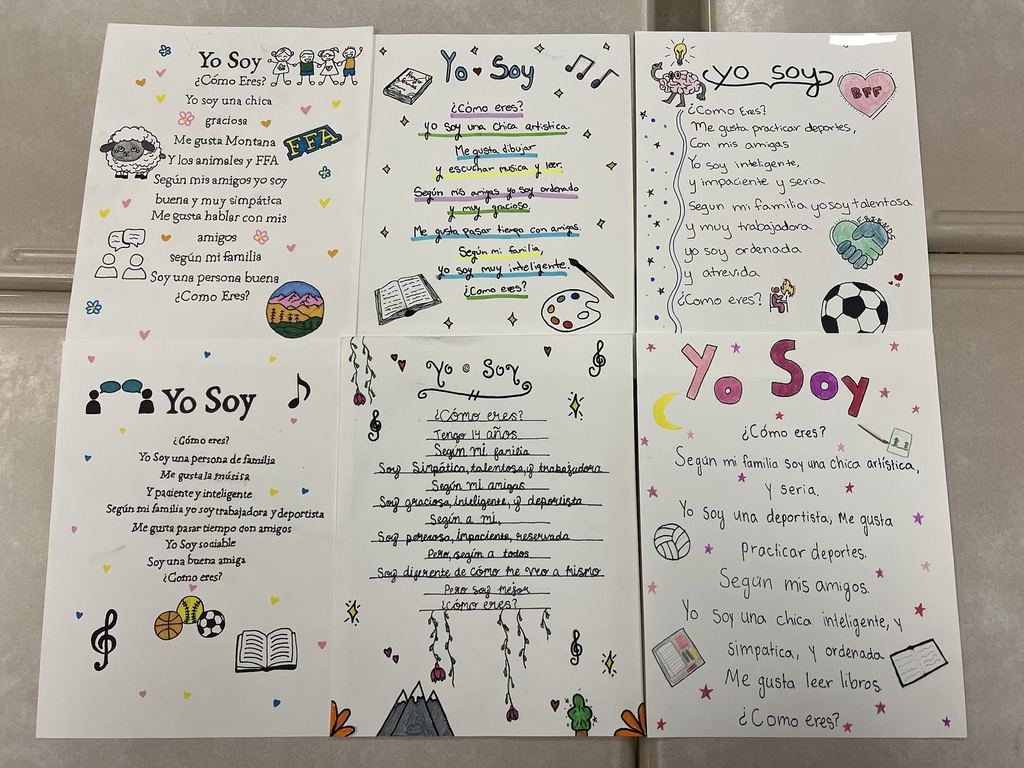 Yo Soy
¿Cómo Eres?
Yo soy una chica
graciosa
Me gusta Montana
Y los animales y FFA
Según mis amigos yo soy
buena y muy simpática
Me gusta hablar con mis
amigos
según mi familia
Soy una persona buena
¿Como Eres?
FFA
Yo Soy
¿Cómo eres?
Yo soy una chica artistica.
Me gusta dibujar
y escuchar musica y leer.
Según mis amigas yo soy ordenado
y muy gracioso.
Me gusta pasar tiempo con amigas.
Según mi familia,
yo soy muy inteligente.
¿Como eres?
yo soy
BFF
¿Como Eres?
Me gusta practicar deportes,
Con mis amigas
Yo soy inteligente,
y impaciente y seria
Segun mi familia yo soy talentosa
y muy trabajadora
yo soy ordenada
y atrevida
¿Como eres?
FRIENDS
Yo Soy
¿Cómo eres?
Yo Soy una persona de familia
Me gusta la músisa
Y paciente y inteligente
Según mi familia yo soy trabajadora y deportista
Me gusta pasar tiempo con amigos
Yo Soy sociable
Soy una buena amiga
¿Como eres?
Yo Soy
¿Cómo eres?
Tengo 14 años
Según mi familia
Soy Simpática, talentosa, y trabajadora
Según mi amigas
Soy graciosa, inteligente, y deportista
Según a mi,
Soy perezosa, impaciente, reservada
Pero, según a todos
Soy difrente de cómo me veo a mismo
Pero soy mejor
¿Cómo eres?
Yo Soy
¿Cómo eres?
Según mi familia soy una chica artística,
Y seria.
Yo soy una deportista, Me gusta
Practicar deportes.
Segun mis amigos.
Yo Soy una chica inteligente, y
simpatica, y ordenada
Me gusta leer libros.
¿Como eres?